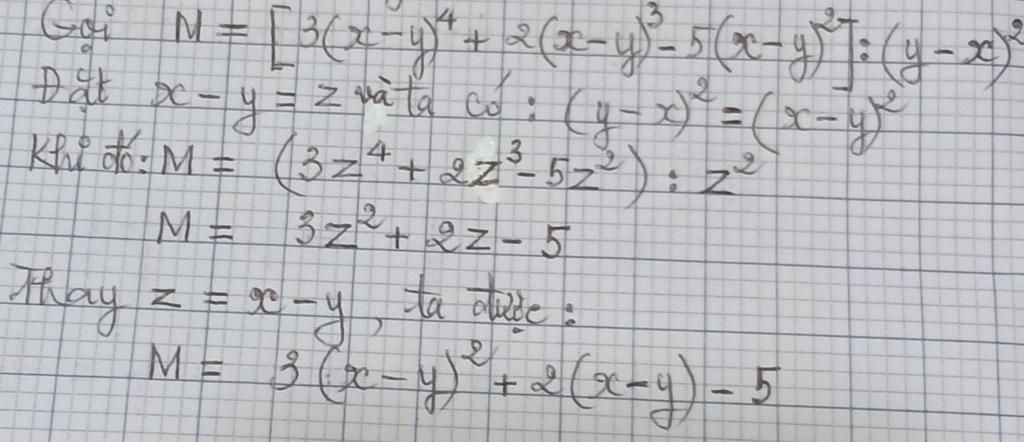 Gọi M = [3(x-y)⁴ + 2(x-y)³ - 5(x-y)²] : (y-x)²
Đặt x - y = z và ta có : (y-x)² = (x-y)²
Khi đó: M = (3z⁴ + 2z³ - 5z²) : z²
M = 3z² + 2z - 5
Thay z = x - y, ta được :
M = 3(x-y)² + 2(x-y) - 5